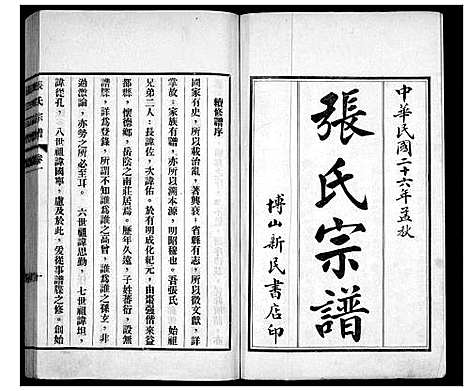 中華民國二十六年孟秋
張氏宗譜
博山新民書店印
續修譜序
國家有史，所以載治亂，著興衰，省縣有志，所以徵文獻，詳
掌故：家族有譜，亦所以溯本源，明昭穆也。吾張氏　始祖
兄弟二人：長諱佐，次諱佑。於有明成化紀元，由棗强偕來益
都縣，懷德鄉，岳陰之南莊居焉。歷年久遠，子姓蕃衍，設無
譜牒，詳爲登錄，所謂不知誰爲誰之高曾，誰爲誰之孫玄，非
過激論，亦勢之所必至耳。　六世祖諱思勤，　七世祖諱坦，
諱從孔，　八世祖諱國寧，慮及於此，爰從事譜牒之修。創始
張氏宗譜